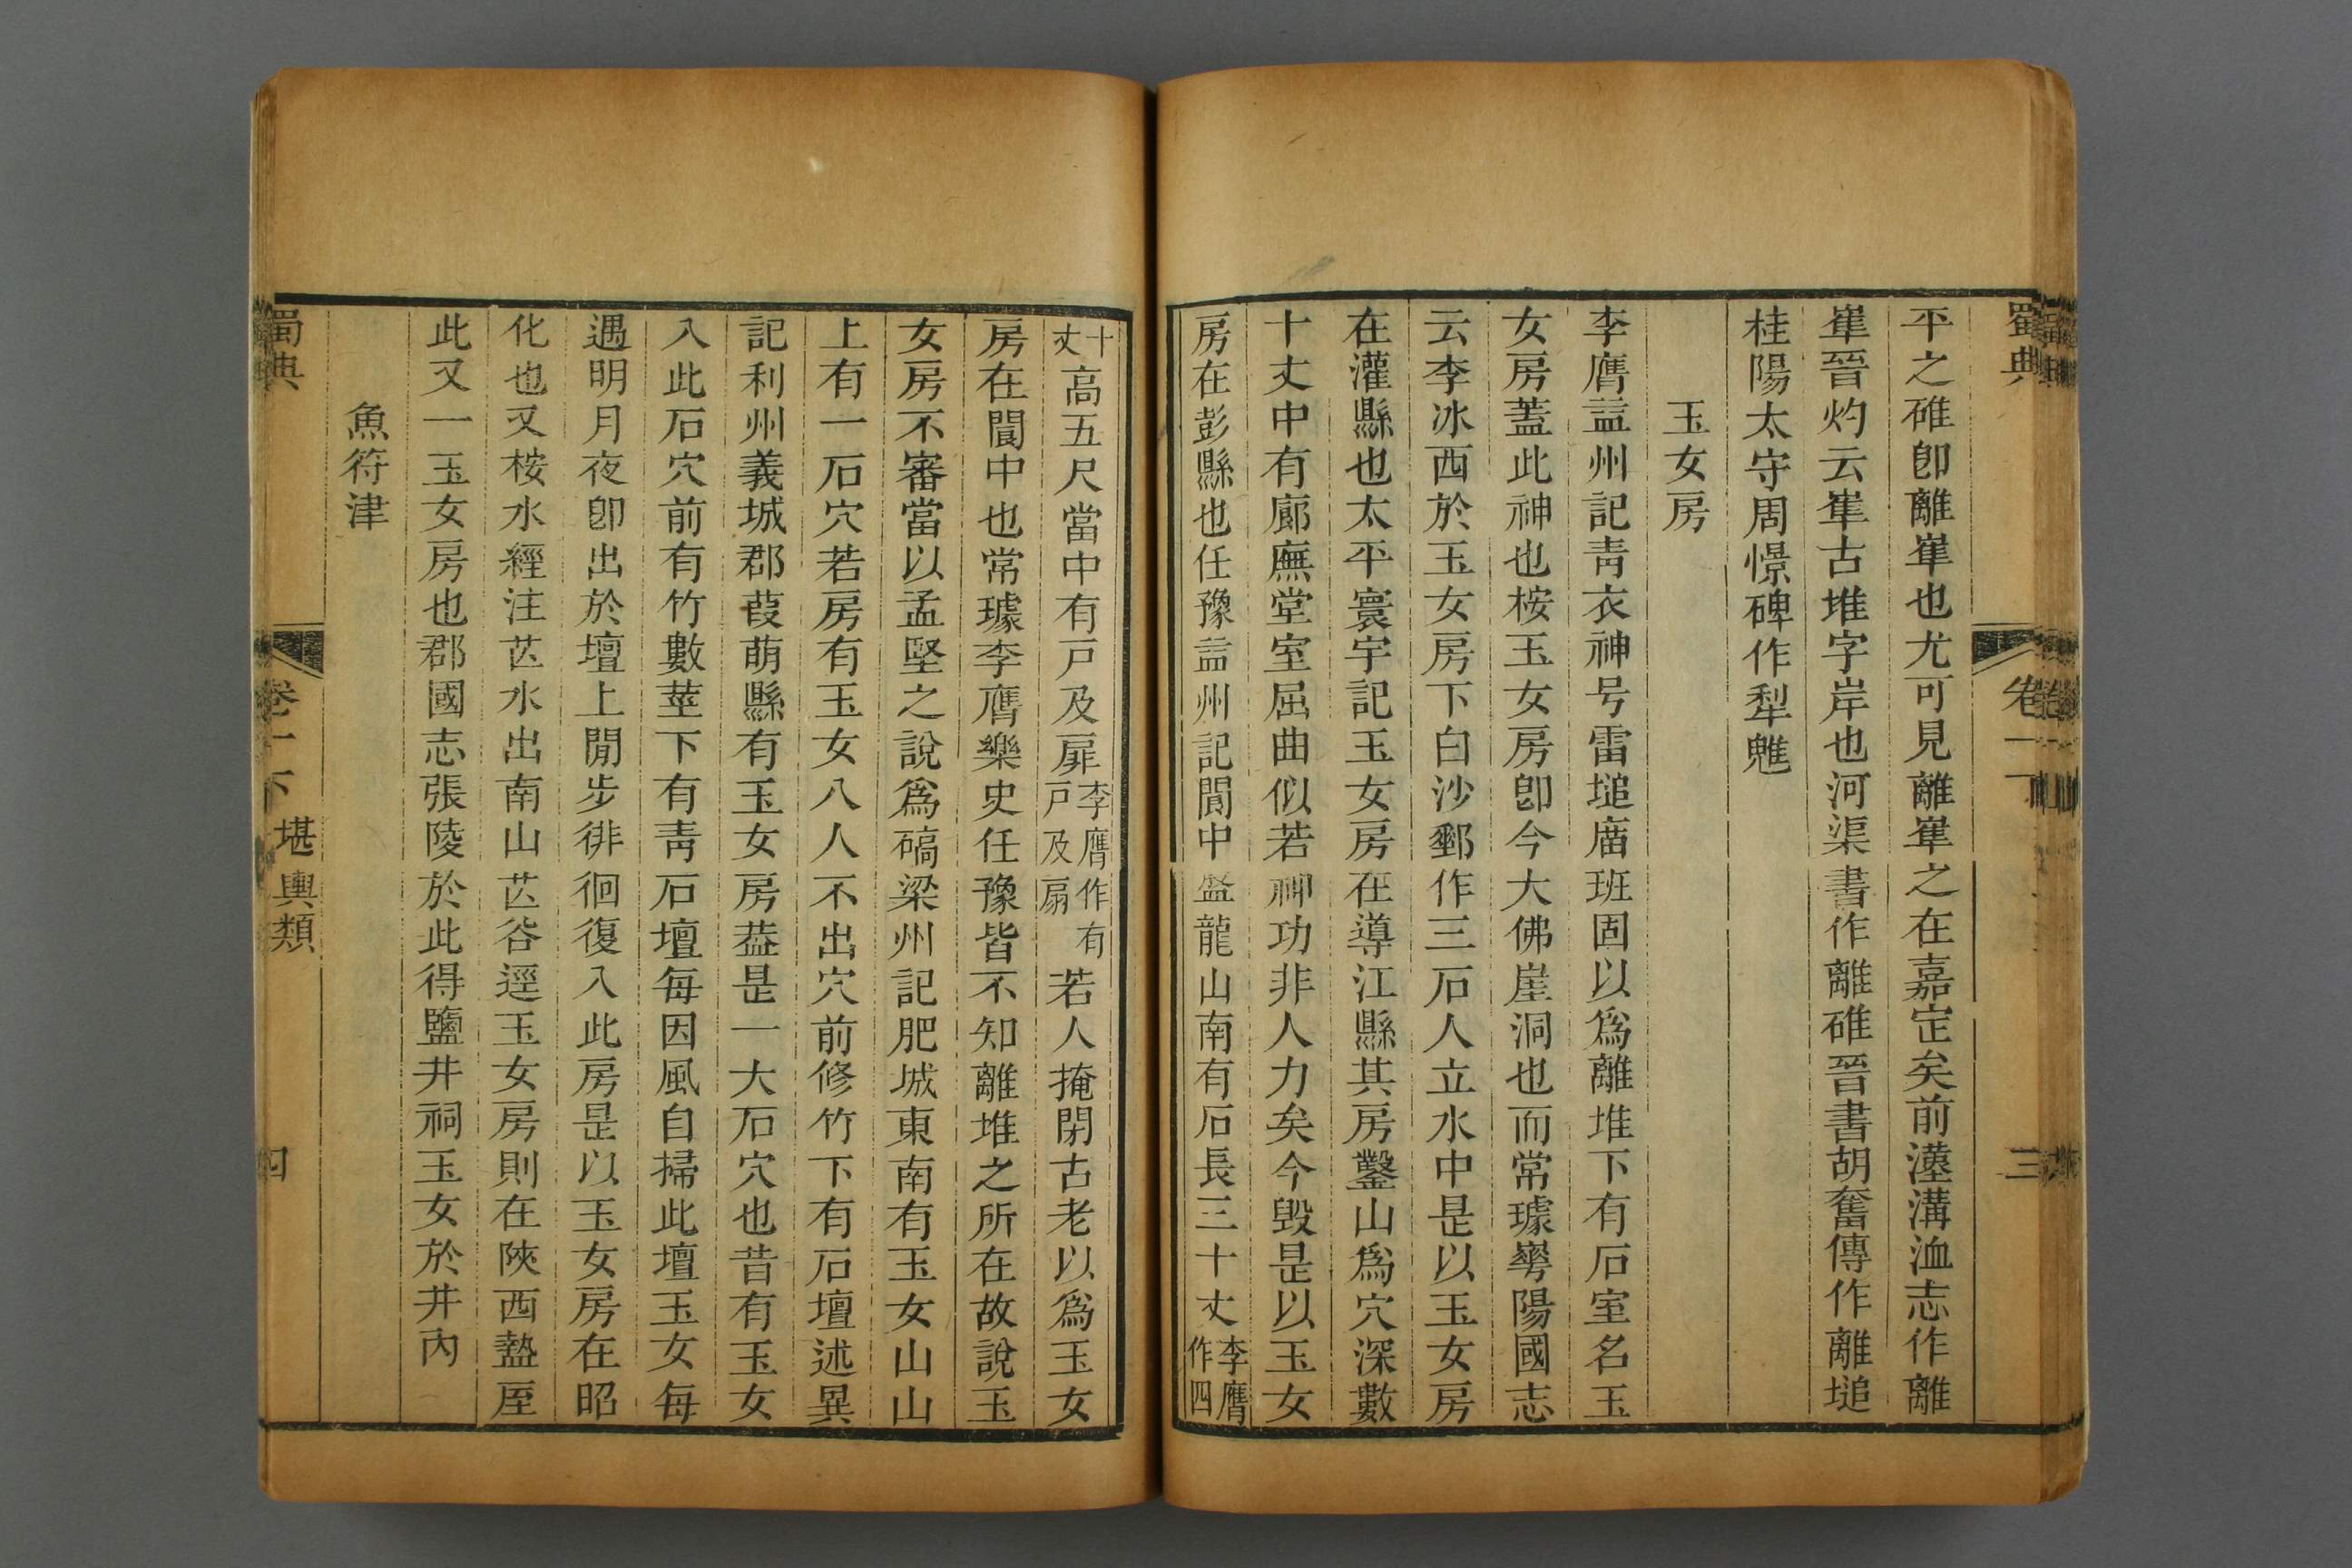 蜀典
卷一下
三
平之碓卽離嶉也尤可見離嶉之在嘉定矣前漢溝洫志作離
嶉晉灼云嶉古堆字岸也河渠書作離碓晉書胡奮傳作離塠
桂陽太守周憬碑作犁魋
玉女房
李膺益州記青衣神号雷塠廟班固以爲離堆下有石室名玉
女房蓋此神也桉玉女房卽今大佛崖洞也而常璩華陽國志
云李冰西於玉女房下白沙郵作三石人立水中是以玉女房
在灌縣也太平寰宇記玉女房在導江縣其房鑿山爲穴深數
十丈中有廊廡堂室屈曲似若神功非人力矣今毀是以玉女
房在彭縣也任豫益州記閬中盤龍山南有石長三十丈李膺作四
十丈高五尺當中有戸及扉李膺作有戸及扇若人掩閉古老以爲玉女
房在閬中也常璩李膺樂史任豫皆不知離堆之所在故說玉
女房不審當以孟堅之說爲碻梁州記肥城東南有玉女山山
上有一石穴若房有玉女八人不出穴前修竹下有石壇述異
記利州義城郡葭萌縣有玉女房葢是一大石穴也昔有玉女
入此石穴前有竹數莖下有青石壇每因風自掃此壇玉女每
遇明月夜卽出於壇上閒步徘徊復入此房是以玉女房在昭
化也又桉水經注芒水出南山芒谷逕玉女房則在陝西盩厔
此又一玉女房也郡國志張陵於此得鹽井祠玉女於井內
魚符津
蜀典
卷一下
堪輿類
四